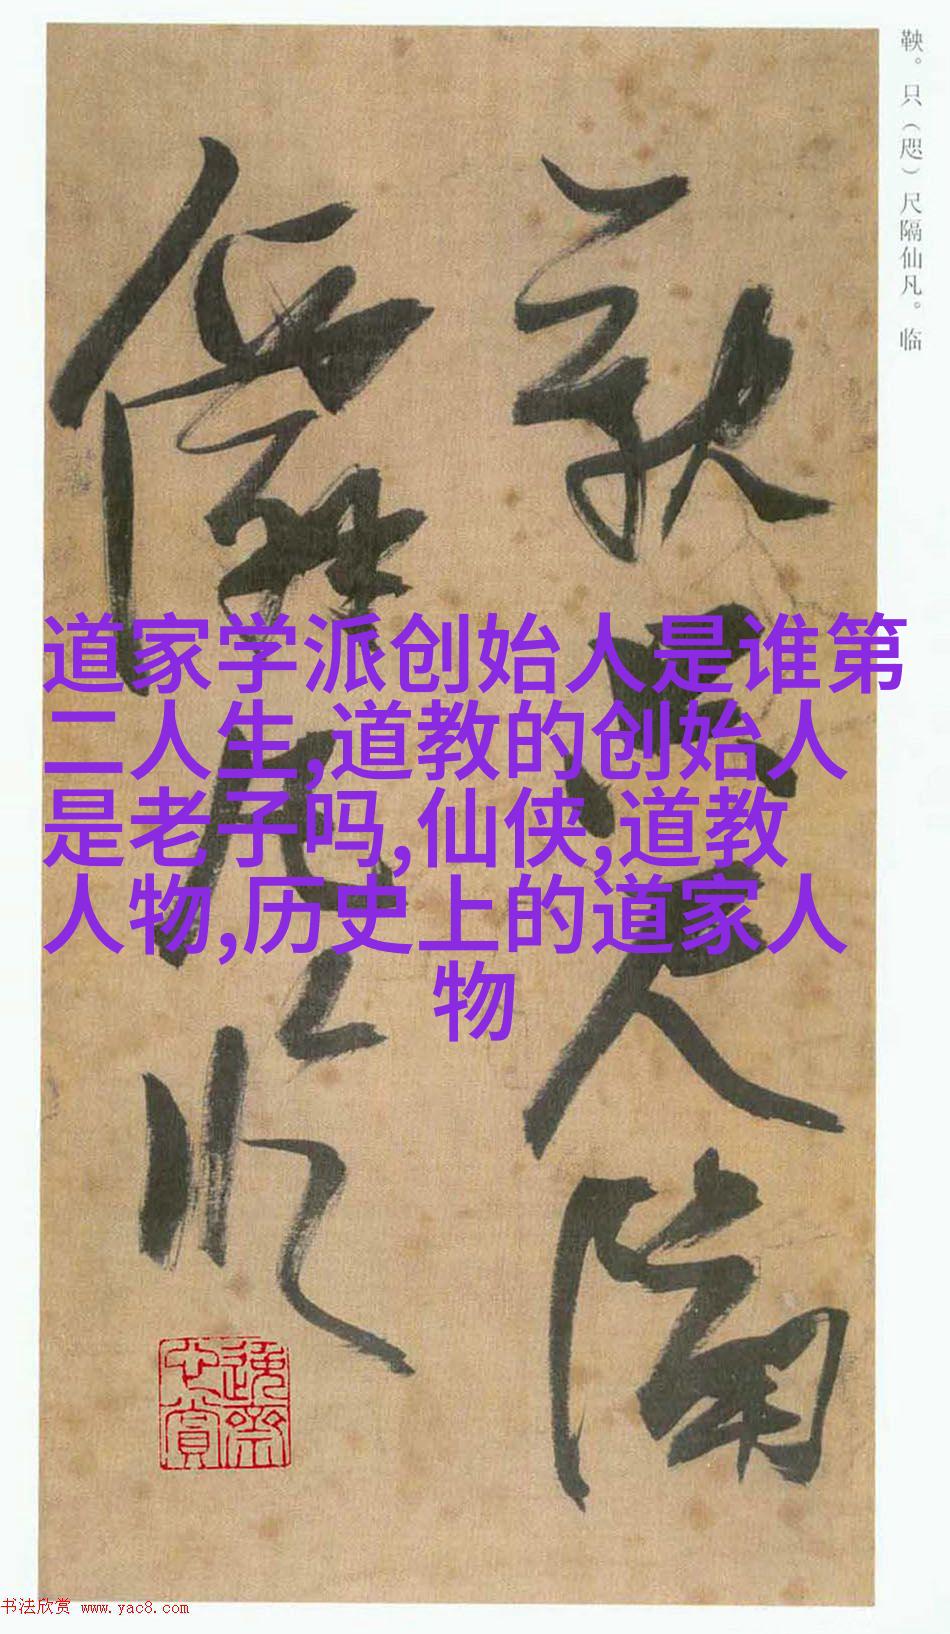 鞅。只（咫）尺隔仙凡。临
鞅只尺隔
仙凡。临
道家学派创始人是谁第
二人生,道教的创始人
是老子吗,仙侠,道教
人物,历史上的道家人
物
书法欣赏 www.yac8.com